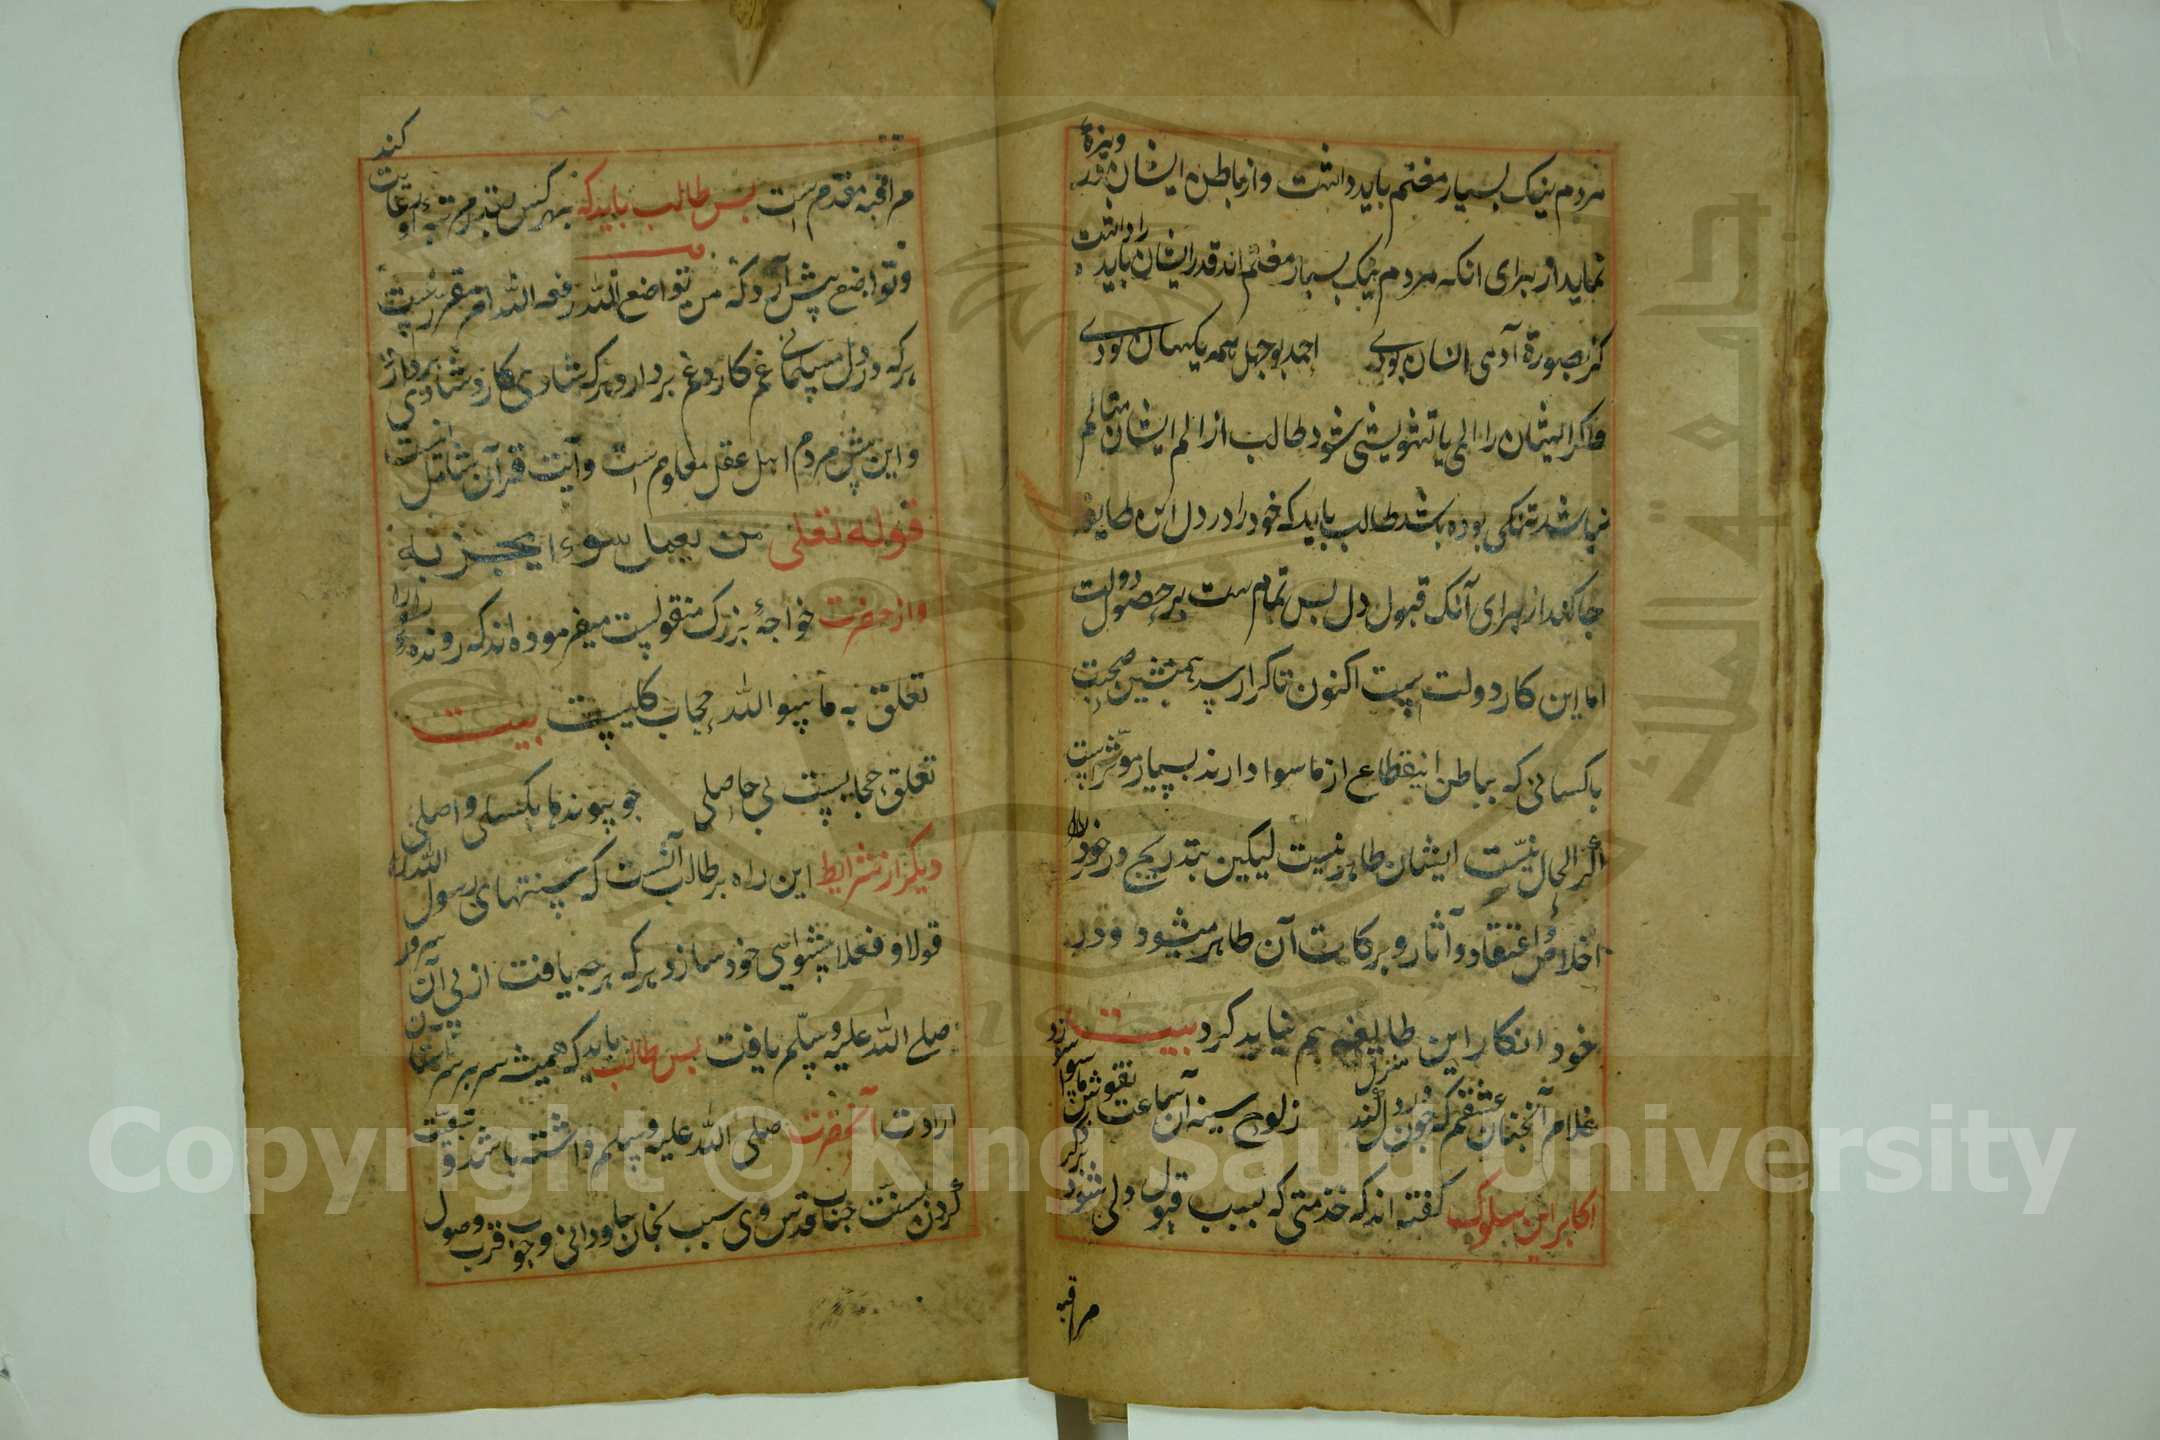 مردم نیک بسیار مغتنم باید دانست و از باطن ایشان دریوزهٔ
نماید از برای انکه مردم نیک بسیار مغتنم اند قدر ایشان باید دانست
کر بصورة آدمی انسان بودی احمد بوجهل همه یکسان بودی
و اکر ایشان را المی یا تشویشی شود طالب از الم ایشان متالم
نباشد بوده باشد طالب باید که خود را در دل این طایفه
جا کند از برای آنک قبول دل بس تمام ست بر حصول دولت
اما این کار دولت ست اکنون تا کرا رسد همنشین صحبت
با کسانی که بباطن انقطاع از ماسوا دارند بسیار مؤثر است
اکر الحال ایشان ظاهر نیست لیکن بتدریج در خود را
اخلاص و اعتقاد و آثار و برکات آن ظاهر میشود و در
خود انکار این طایفه هم نباید کرد بیت
غلام آنچنان عشقم که چون در دل کند منزل ز لوح سینه آن ساعت نقوش ماسوا سوزد
اکابر این سلوک کفته اند که خدمتی که بسبب قبول دلی شود بر ذکر
مراقبه
مراقبه مقدم است بس طالب باید که بهر کس بقدر مرتبهٔ او رعایت کند
و تواضع پیش آرد که من تواضع لله رفعه الله امر مقرر است
هر که در دل مسلمانی غم کارد غم بردارد و هر که شادی کارد شادی بردارد
و این پیش مردم اهل عقل معلوم است و آیت قرآن شامل است
قوله تعلی من یعمل سوءا یجز به
و از حضرت خواجهٔ بزرک منقولست میفرموده اند که رونده راه را
تعلق به ماسوا الله حجاب کلیست بیت
تعلق حجابست بی حاصلی جو پیوندها بکسلی واصلی
دیکر از شرایط این راه بر طالب آنست که سنتهای رسول الله را
قولا و فعلا پیشوای خود سازد هر که هرجه یافت از پی آن سرور
صلی الله علیه وسلم یافت بس طالب باید که همیشه سر بر آستان
ارادت آنحضرت صلی الله علیه وسلم داشته باشد و تبعیت
کردن سنت جناب قدس وی سبب نجات جاودانی و جواب قرب وصول
Copyright © King Saud University
جامعة الملك سعود
1957